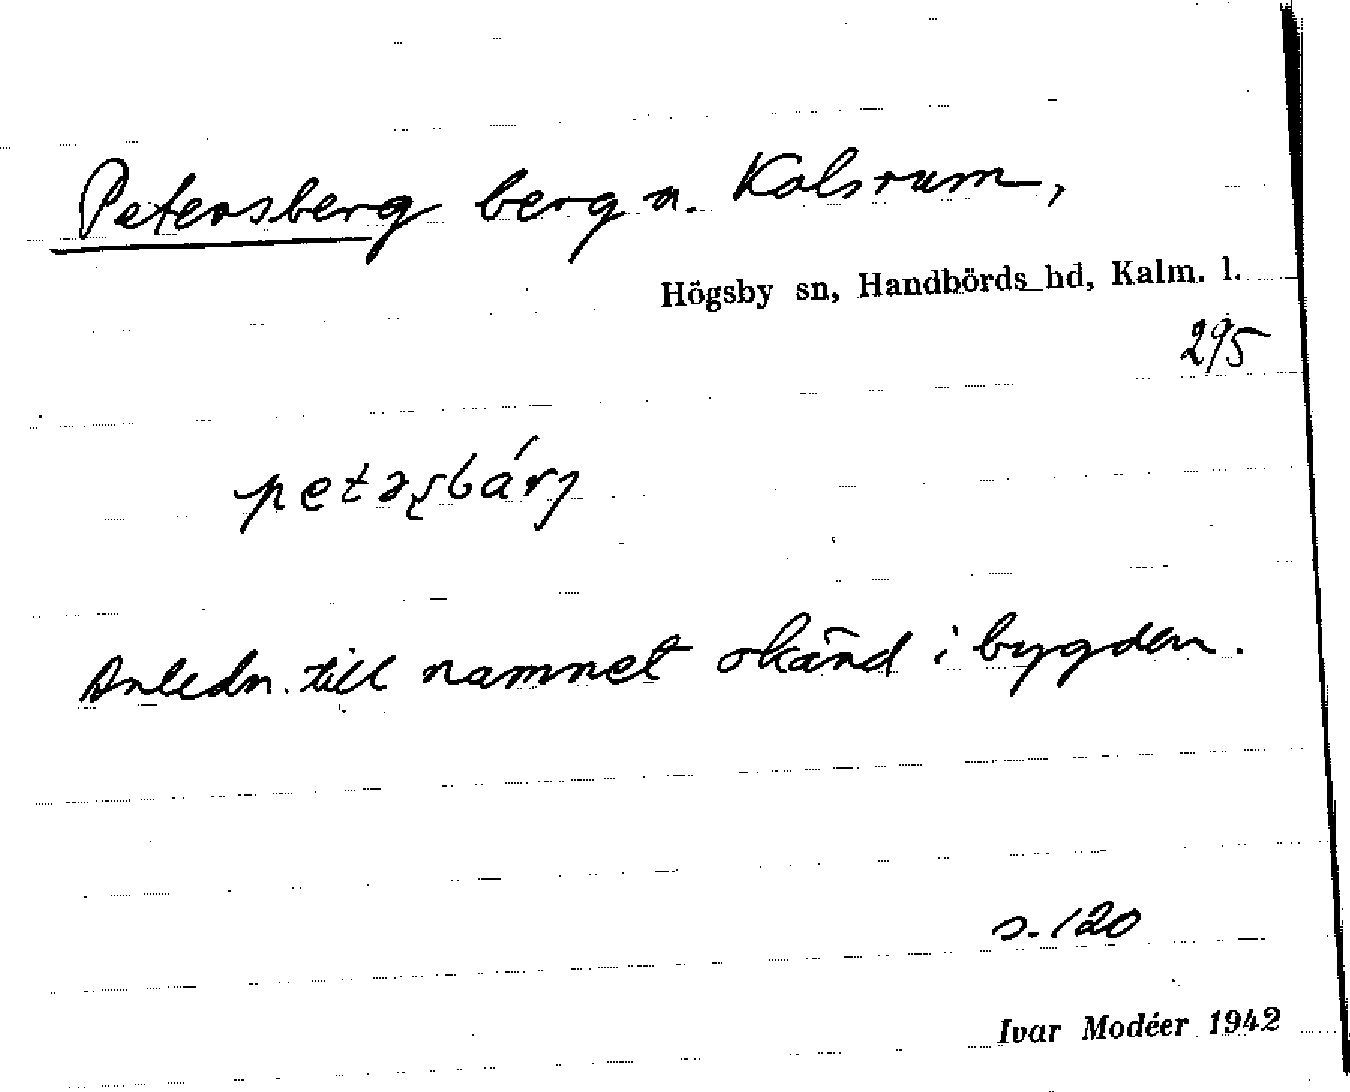 Petersberg berg n. Kolsrum,
Högsby sn, Handbörds hd, Kalm. l.
295
petəʂbárj
Anledn. till namnet okänd i bygden.
s. 120
Ivar Modéer 1942